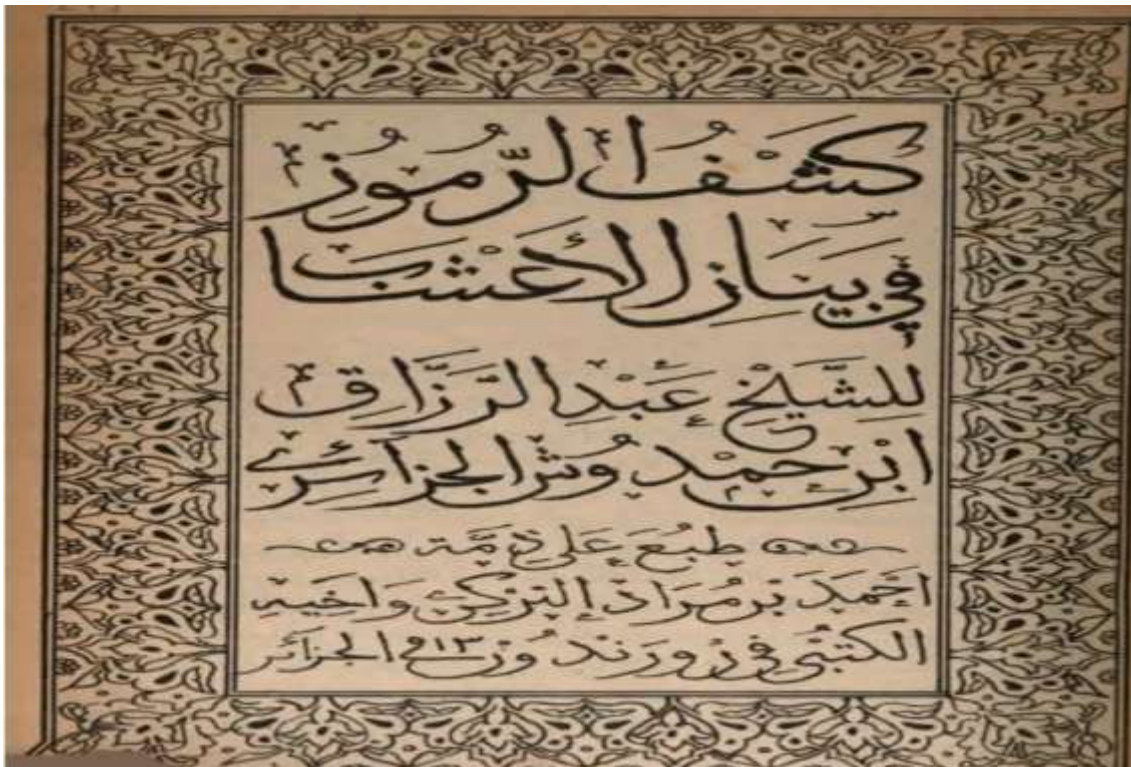 كَشْفُ الرُّمُوزِ
في بَيَانِ الأَعْشَاب
لِلشَّيْخِ عَبْدِ الرَّزَّاقِ
ابْنِ حَمْدُوش الجَزَآئِرِي
طُبِعَ عَلَى ذِمَّة
احْمَدَ بن مُرَاد التركي وَاخِيهِ
الكتبي في
١٣ الجزائر